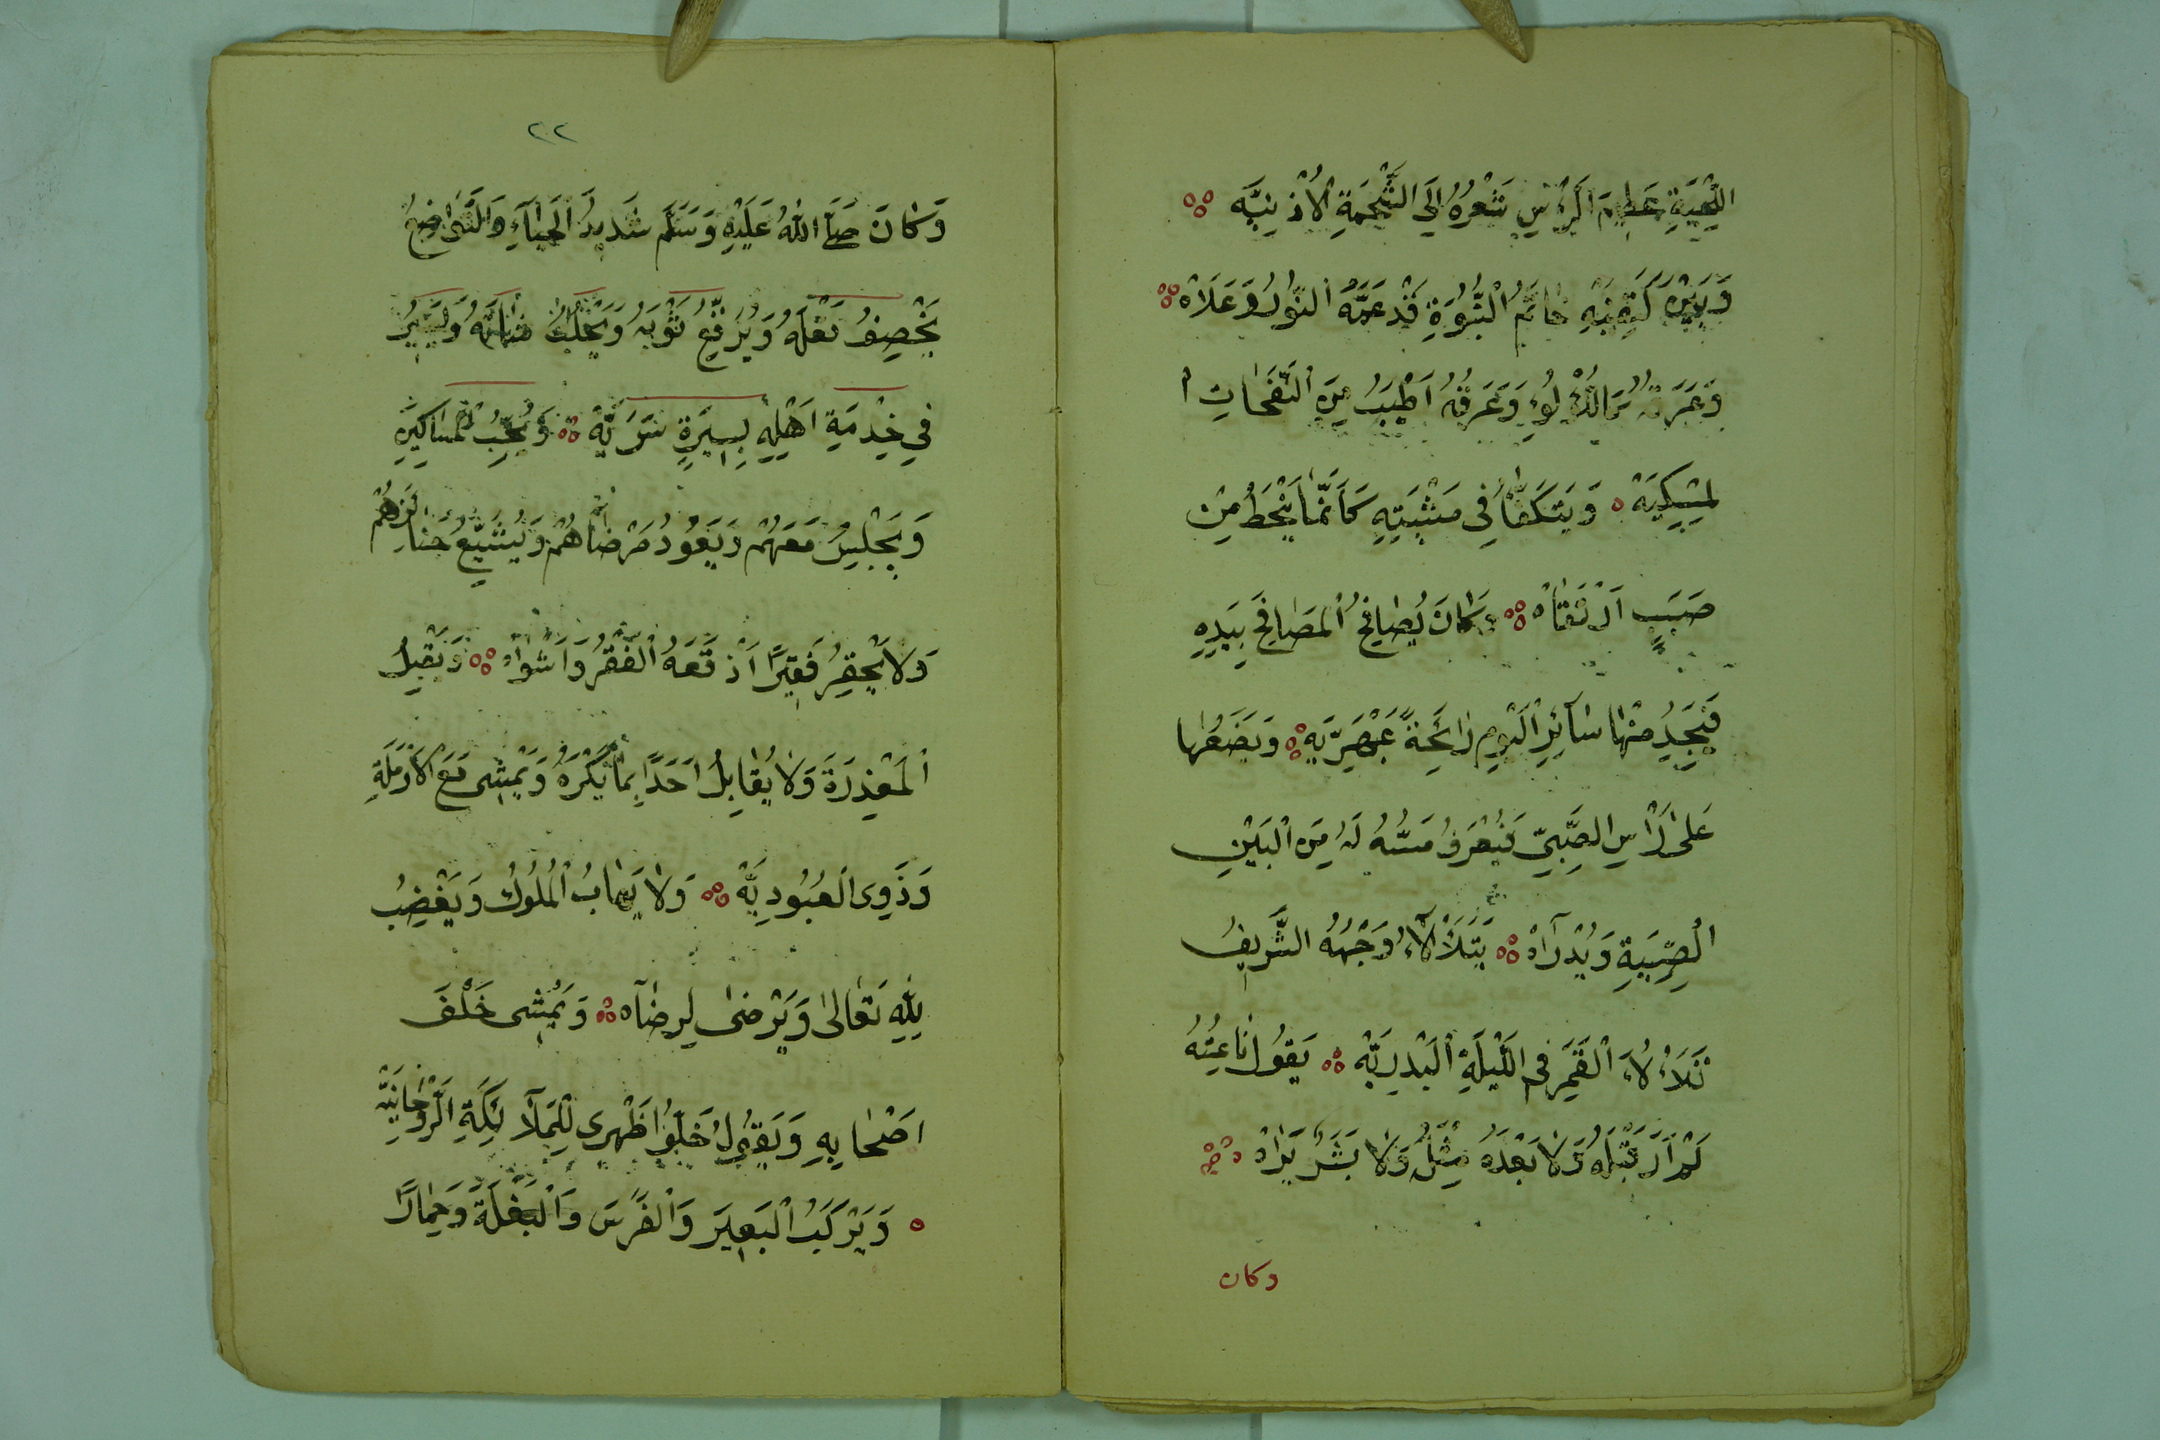 اللِّحْيَةِ عَظِيمَ الرَّأْسِ شَعْرُهُ اِلَى الشَّحْمَةِ الْاُذْنِيَّه
وَبَيْنَ كَتِفَيْهِ خَاتَمُ النُّبُوَّةِ قَدْ عَمَّهُ النُّورُ وَعَلَاهْ
وَعَرَقُهُ كَاللُّؤْلُوءِ وَعَرْفُهُ اَطْيَبُ مِنَ النَّفَحَاتِ ا
لمِسْكِيَهْ وَيَتَكَفَّأُ فِى مَشْيَتِهِ كَاَنَّمَا يَنْحَطُّ مِنْ
صَبَبٍ اَرْتَقَاهْ وَكَانَ يُصَافِحُ الْمُصَافِحَ بِيَدِهِ
فَيَجِدُ مِنْهَا سَآئِرَ الْيَومِ رَائِحَةً عَبْهَرِيَّه وَيَضَعُهَا
عَلَى رَأْسِ الصَّبِيِّ فَيُعْرَفُ مَسُّهُ لَهُ مِنَ الْبَيْنِ
الصِّبْيَةِ وَيُدْرَاهْ يَتَلَأْلَاءُ وَجْهُهُ الشَّرِيفُ
تَلَاْلُاءَ الْقَمَرِ فِى اللَّيْلَةِ الْبَدْرِيَّهْ يَقُولُ نَاعِتُهُ
لَمْ اَرَ قَبْلَهُ وَلَا بَعْدَهُ مِثْلَهُ وَلَا بَشَرٌ يَرَاهْ
وكان
٢٢
وَكَانَ صَلَّى اللهُ عَلَيْهِ وَسَلَّمَ شَدِيدَ الْحَيَآءِ وَالتَّوَاضِعُ
يَخْصِفُ نَعْلَهُ وَيُرَقِّعُ ثَوْبَهُ وَيَحْلِبُ شَاتَهُ وَيَسِيرُ
فِي خِدْمَةِ اَهْلِهِ بِسِيرَةٍ سَرِيَّهْ وَيُحِبُّ الْمَسَاكِينَ
وَيَجْلِسُ مَعَهُمْ وَيَعُودُ مَرْضَاهُمْ وَيُشَيِّعُ جَنَائِزَهُمْ
وَلَا يُحَقِّرُ فَقِيرًا اَدْقَعَهُ الْفَقْرُ وَاَشْوَاهْ وَيَقْبَلُ
الْمَعْذِرَةَ وَلَا يُقَابِلُ اَحَدًا بِمَا يَكْرَهُ وَيَمْشِى مَعَ الْاَرْمَلَةِ
وَذَوِى الْعُبُودِيَّهْ وَلَا يَهَابُ الْمُلُوكَ وَيَغْضِبُ
لِلّٰهِ تَعَالَى وَيَرْضَى لِرِضَآه وَيَمْشِى خَلْفَ
اَصْحَابِهِ وَيَقُولُ خَلُّوا ظَهْرِى لِلْمَلَآئِكَةِ الرَّوْحَانِيَّهْ
وَيَرْكَبُ الْبَعِيرَ وَالْفَرَسَ وَالْبَغْلَةَ وَحِمَارًا